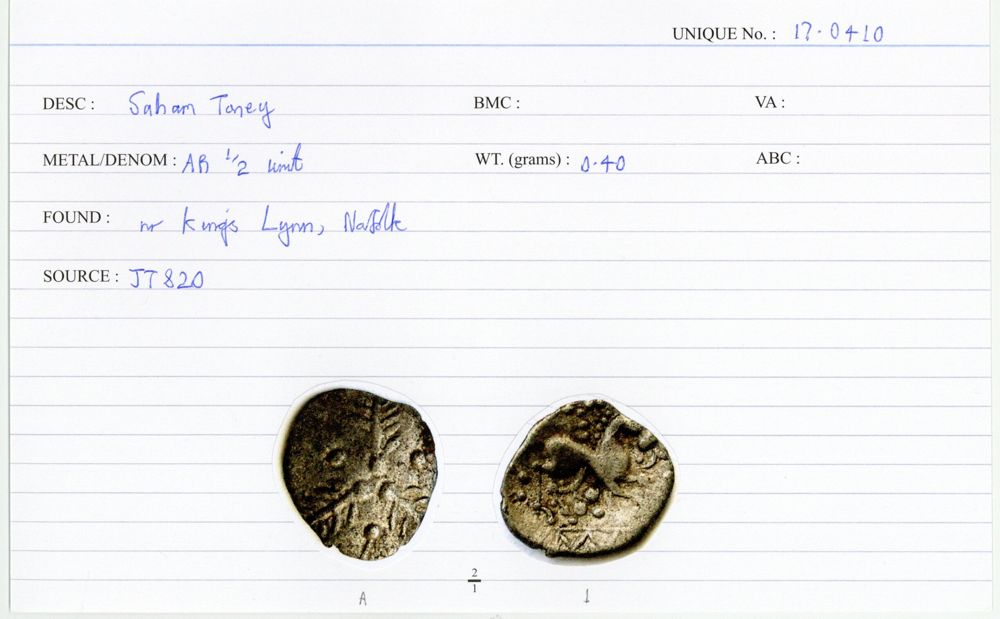 UNIQUE No. : 17·0410
DESC : Saham Toney BMC : VA :
METAL/DENOM : AR 1/2 unit WT. (grams) : 0·40 ABC :
FOUND : nr King's Lynn, Norfolk
SOURCE : JT820
2/1
A 1